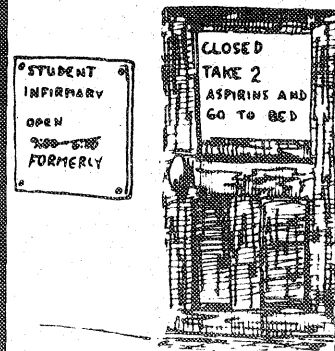 STUDENT
INFIRMARY
OPEN
FORMERLY
CLOSED
TAKE 2
ASPIRINS AND
GO TO BED